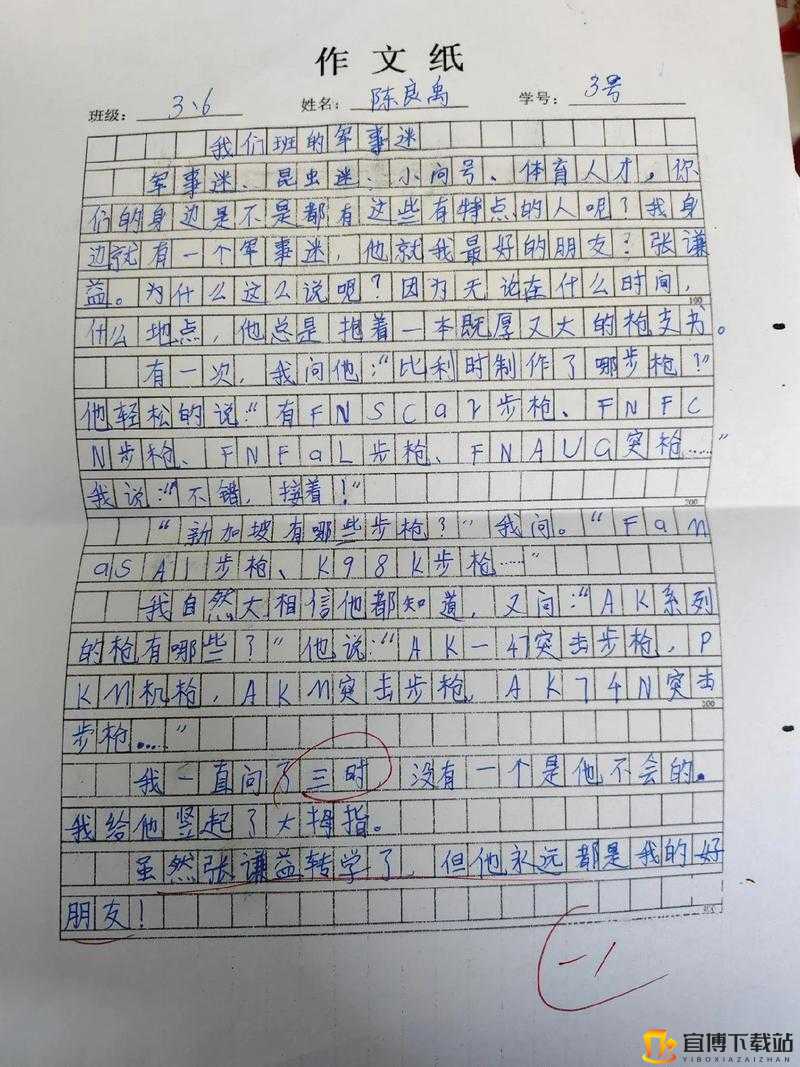 作文纸
班级：3、6 姓名：陈良禹 学号：3号
我们班的军事迷
军事迷、昆虫迷、小问号、体育人才，你
们的身边是不是都有这些有特点的人呢？我身
边就有一个军事迷，他就我最好的朋友？张谦
益。为什么这么说呢？因为无论在什么时间，
100
什么地点，他总是抱着一本既厚又大的枪支书。
有一次，我问他：“比利时制作了哪步枪？”
他轻松的说：“有FNSCar步枪、FNFC
N步枪、FNFaL步枪、FNAUG突枪……”
我说：“不错，接着！”
200
“新加坡有哪些步枪？”我问。“Fam
aSA1步枪、K98K步枪……”
我自然大相信他都知道，又问：“AK系列
的枪有哪些？”他说：“AK-47突击步枪，P
KM机枪，AKM突击步枪，AK74N突击
300
步枪……”
我一直问了三时，没有一个是他不会的。
我给他竖起了大拇指。
虽然张谦益转学了，但他永远都是我的好
朋友！
-1
宜博下载站
YIBOXIAZAIZHAN